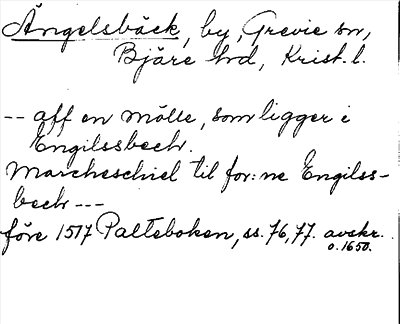 Ängelsbäck, by, Grevie sn,
Bjäre hd, Krist. l.
-- aff en mölle, som ligger i
Engilssbech.
Marcheschiel til for:ne Engilss-
bech ---
före 1517 Palteboken, ss. 76, 77. avskr.
o. 1650.